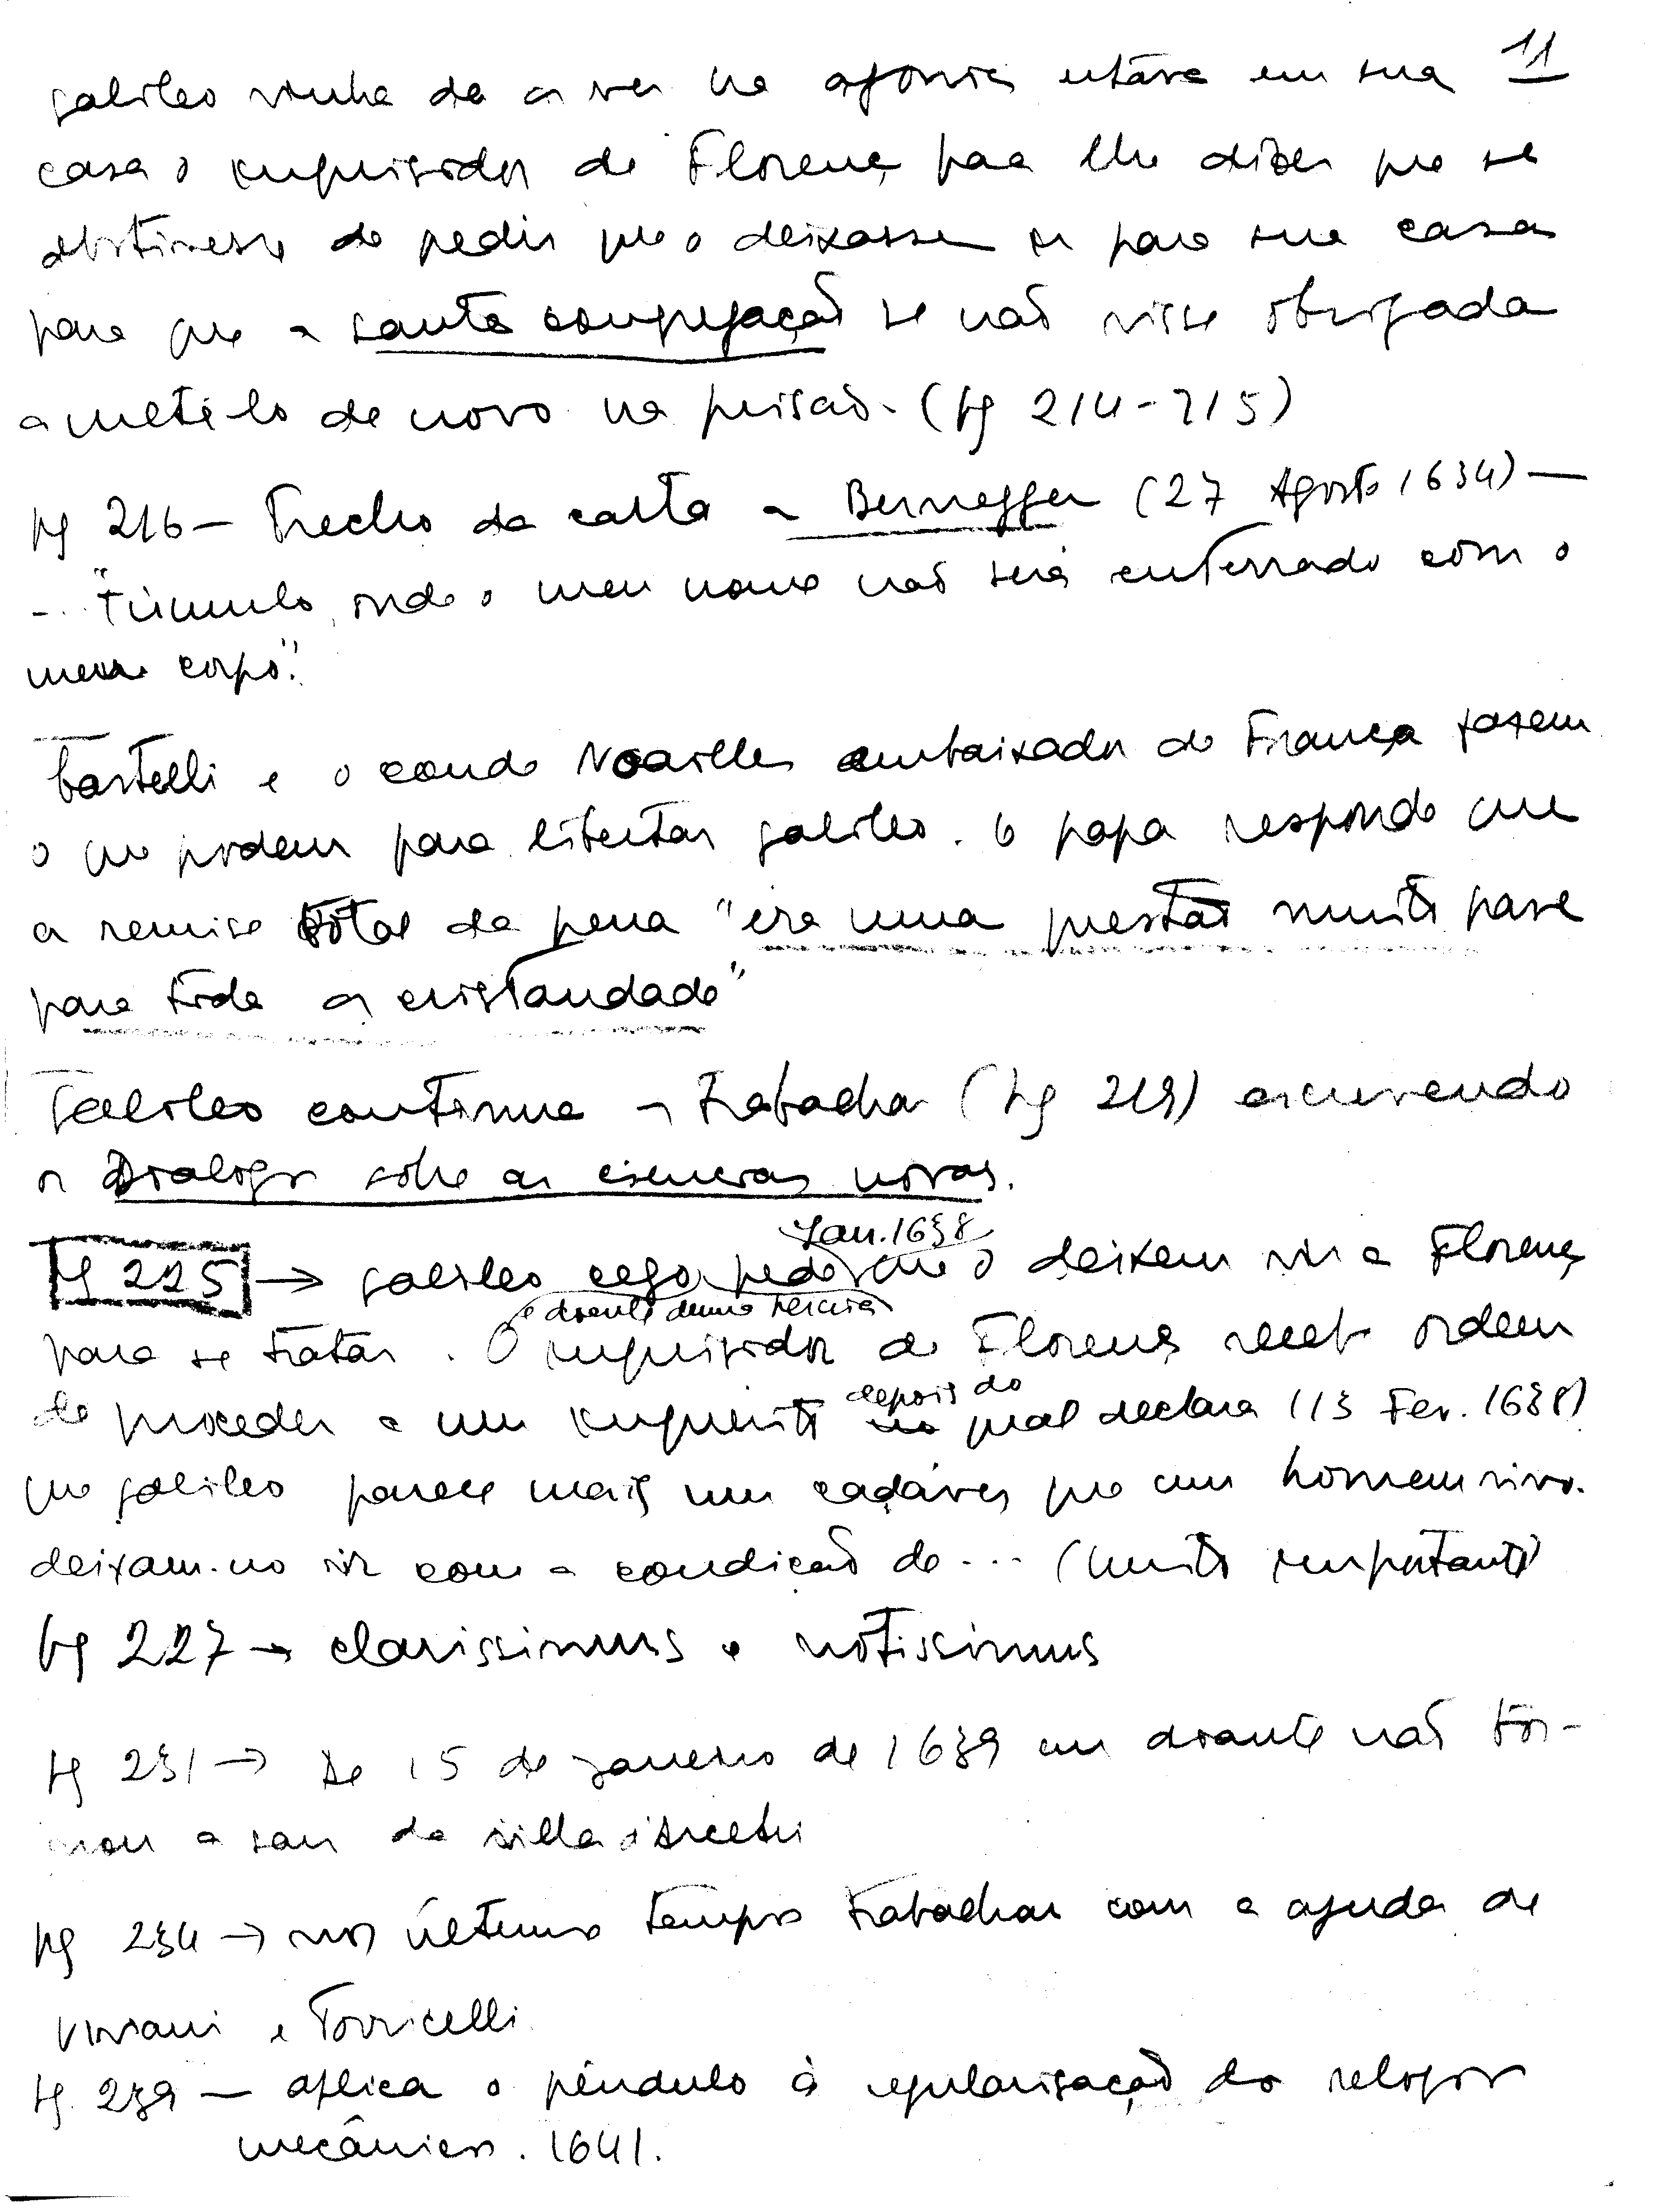 11
Galileo vinha de a ver na agonia estava em sua
casa o inquisidor de Florença para lhe dizer que se
abstivesse de pedir que o deixassem ir para sua casa
para que a santa congregação se não visse obrigada
a metê-lo de novo na prisão. (pg 214-215)
pg 216 — Trecho da carta a Bernegger (27 Agosto 1634) —
... "túmulo, onde o meu nome não será enterrado com o
meu corpo".
Castelli e o conde Noailles embaixador de França fazem
o que podem para libertar Galileo. O papa responde que
a remise total da pena "era uma questão muito grave
para toda a cristandade"
Galileo continua a trabalhar (pg 219) escrevendo
o Dialogo sobre as ciencias novas.
Jan. 1638
pg 225 → Galileo cego pede que o deixem vir a Florença
e doente duma hernia
para se tratar. O inquisidor de Florença recebe ordem
de proceder a um inquerito depois do qual declara (13 Fev. 1638)
que Galileo parece mais um cadáver que um homem vivo.
deixam-no vir com a condição de ... (muito importante)
pg 227 → clarissimus e notissimus
pg 231 → De 15 de janeiro de 1639 em doante não tor-
nou a sair da villa d'Arcetri
pg 234 → nos últimos tempos trabalha com a ajuda de
Viviani e Torricelli
pg. 239 — aplica o pêndulo à regularisação do relogio
mecânico. 1641.